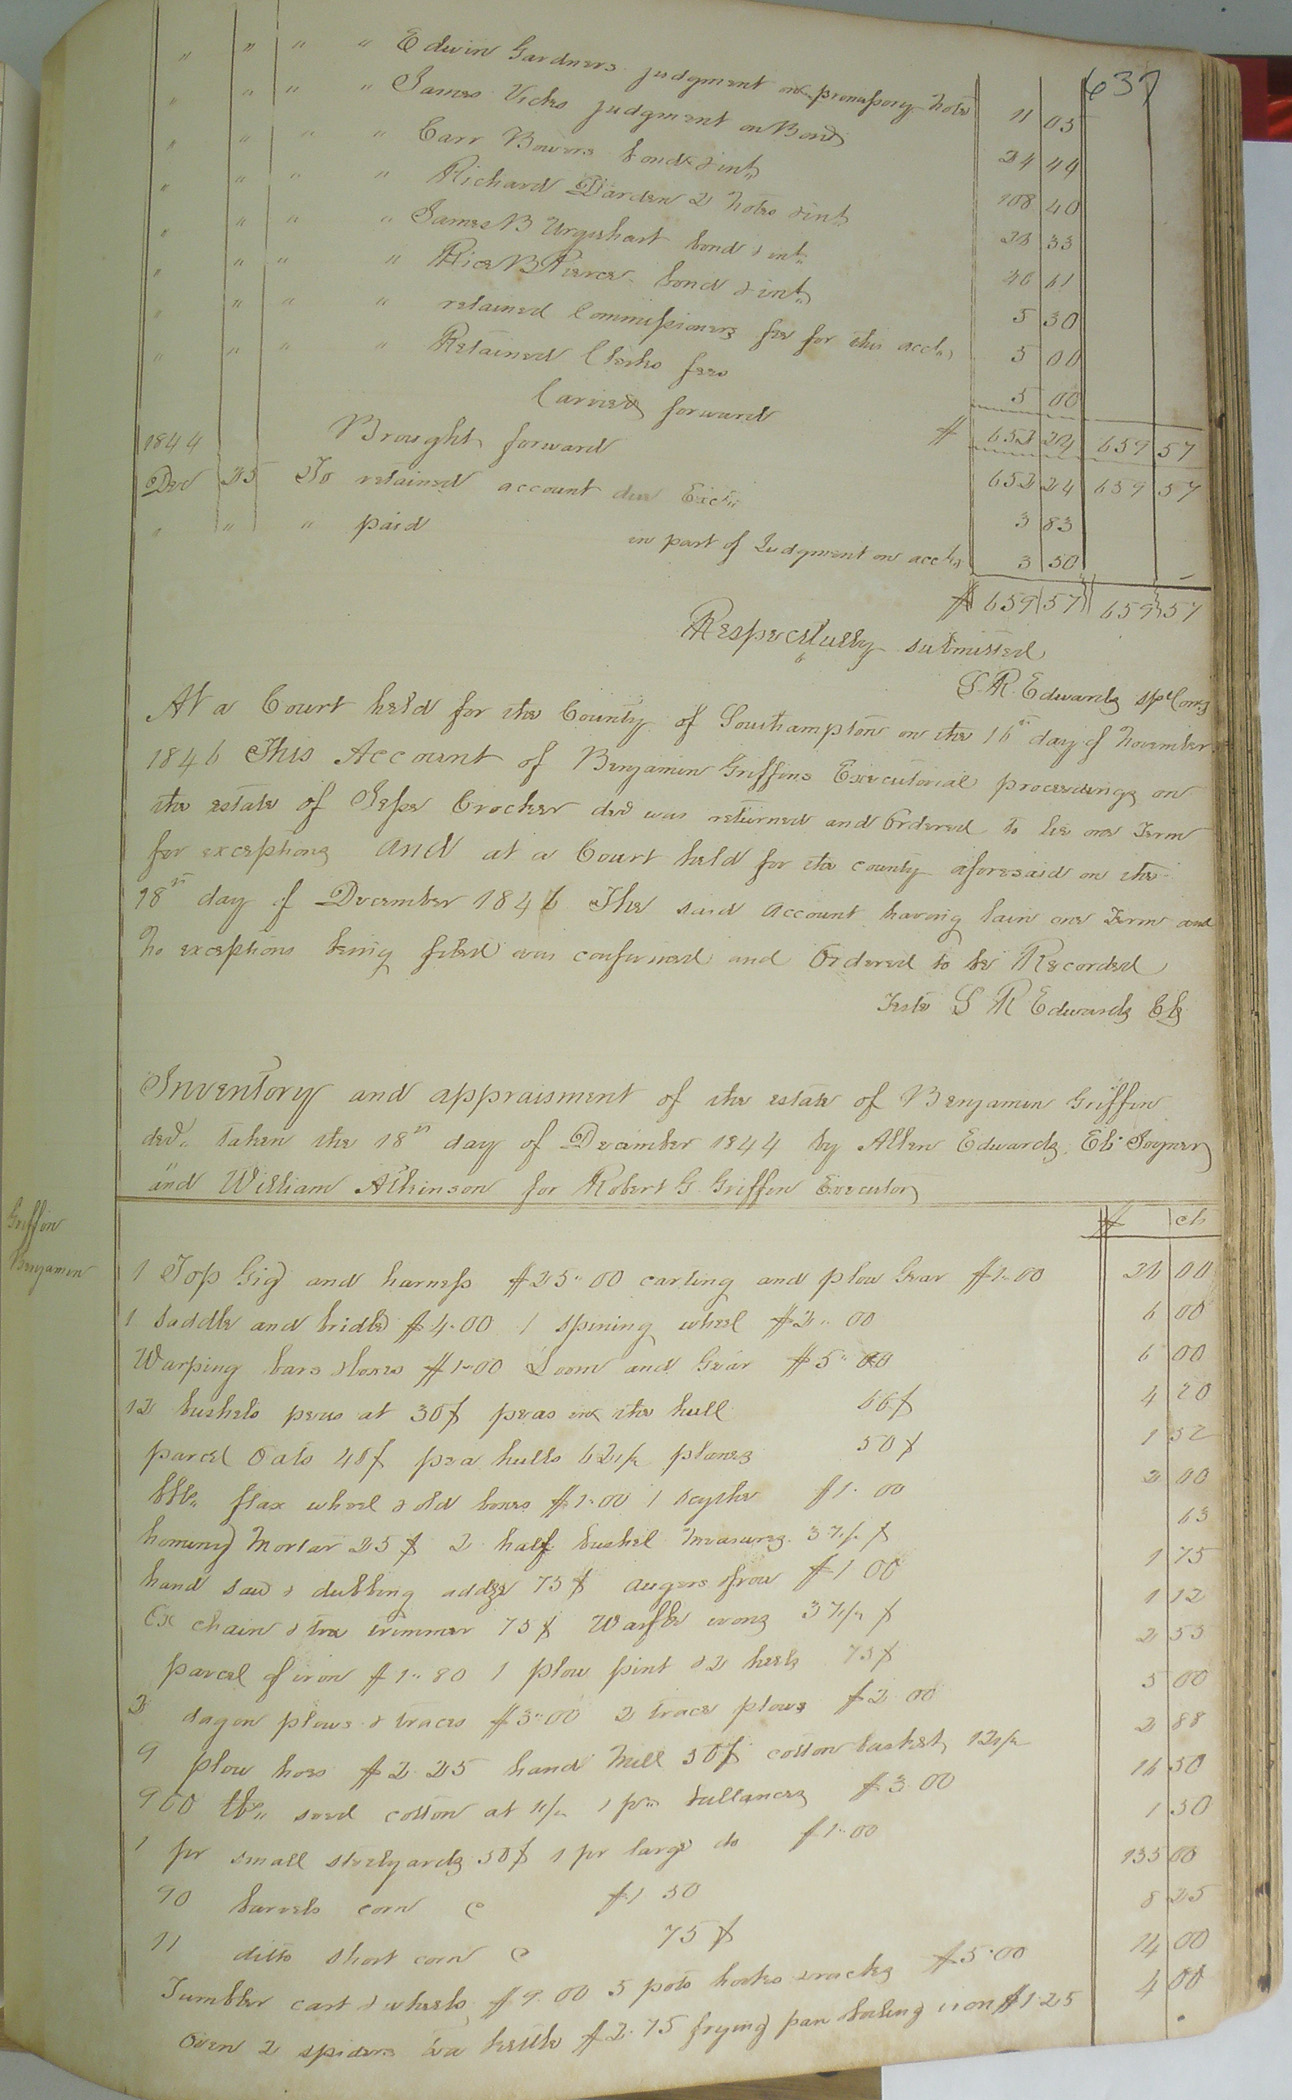 637
" " " " Edwin Gardners judgment on promissory note 11 05
" " " " James Vicks judgment on Bond 24 44
" " " " Carr Bowers bond & int. 108 40
" " " " Richard Darden 2 notes & int. 28 33
" " " " James B Urquhart bond & int. 46 61
" " " " Rice B Pierce bond & int. 5 30
" " " " retained Commissioners fee for this acct. 5 00
" " " " Retained Clerks fees 5 00
Carried forward $ 652 24 659 57
1844 Brought forward 652 24 659 57
Dec 25 To retained account due Exct. 3 83
" " " paid in part of Judgment on acct. 3 50
$ 659 57 659 57
Respectfully submitted
L. R. Edwards spl Comr
At a Court held for the County of Southampton on the 16th day of November
1846 This Account of Benjamin Griffins Executorial proceedings on
the estate of Jesse Crocker decd was returned and Ordered to lie one Term
for exceptions and at a Court held for the county aforesaid on the
18th day of December 1846 The said account having lain one Term and
No exceptions being filed was confirmed and Ordered to be Recorded
Teste L R Edwards Clk
Inventory and appraisment of the estate of Benjamin Griffin
decd. taken the 18th day of December 1844 by Allen Edwards, Eb. Joyner
and William Atkinson for Robert G. Griffin Executor
Griffin
Benjamin
$ cts
1 Top Gig and harness $25.00 carting and plow Gear $1.00 26 00
1 saddle and bridle $4.00 1 spining wheel $2.00 6 00
Warping bars & boxes $1.00 Loom and Gear $5.00 6 00
12 bushels peas at 30¢ peas in the hull 66¢ 4 20
parcel Oats 40¢ pea hulls 62 1/2 planes 50¢ 1 52
flax wheel & old boxes $1.00 1 scythe $1.00 2 00
hominy Mortar 25¢ 2 half bushel measures 37 1/2¢ 63
hand saw & dubbing addze 75¢ augers & frow $1 00 1 75
Ox chain & tra trimmer 75¢ Waffle irons 37 1/2¢ 1 12
parcel of iron $1.80 1 plow pint & 2 heels 75¢ 2 55
2 dagon plows & traces $3.00 2 trace plows $2.00 5 00
9 plow hoes $2.25 hand Mill 50¢ cotton basket 12 1/2 2 88
900 lbs. seed cotton at 1 1/2 1 pr. ballances $3.00 16 50
1 pr small steelyards 50¢ 1 pr large do $1.00 1 50
90 barrels corn @ $1 50 135 00
11 ditto short corn @ 75¢ 8 25
Tumbler cart & wheels $9.00 5 pots hooks & racks $5.00 14 00
Oven 2 spiders tea kettle $2.75 frying pan boiling iron $1.25 4 00